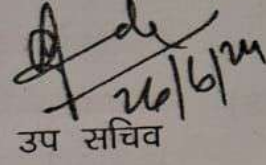 26/6/24
उप सचिव